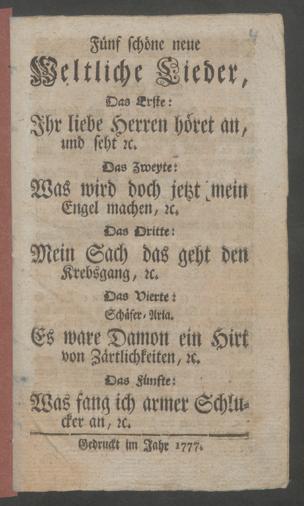 4
Fünf schöne neue
Weltliche Lieder,
Das Erste:
Ihr liebe Herren höret an,
und seht ꝛc.
Das Zweyte:
Was wird doch jetzt mein
Engel machen, ꝛc.
Das Dritte:
Mein Sach das geht den
Krebsgang, ꝛc.
Das Vierte:
Schäfer-Aria.
Es ware Damon ein Hirt
von Zärtlichkeiten, ꝛc.
Das Fünfte:
Was fang ich armer Schlu-
cker an, ꝛc.
Gedruckt im Jahr 1777.